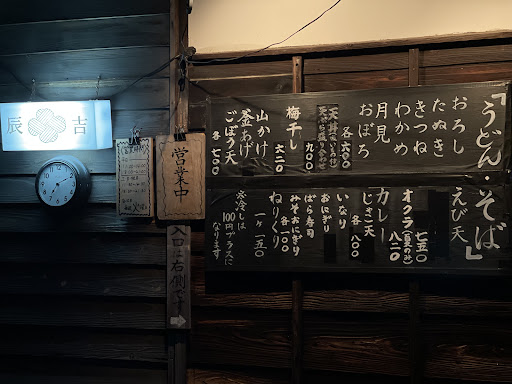 辰 吉
営業中
入口は右側です
「うどん・そば」
おろし
たぬき
きつね
わかめ
月見
おぼろ
各 六〇〇
天丼
九〇〇
梅干し
六二〇
山かけ
釜あげ
ごぼう天
各 七〇〇
えび天
七五〇
オクラ
八二〇
カレー
じゃこ天
各 八〇〇
いなり
おにぎり
ばら寿司
みそおにぎり
各 一〇〇
ねりくり
一ヶ 一五〇
※冷しは
100円プラスに
なります